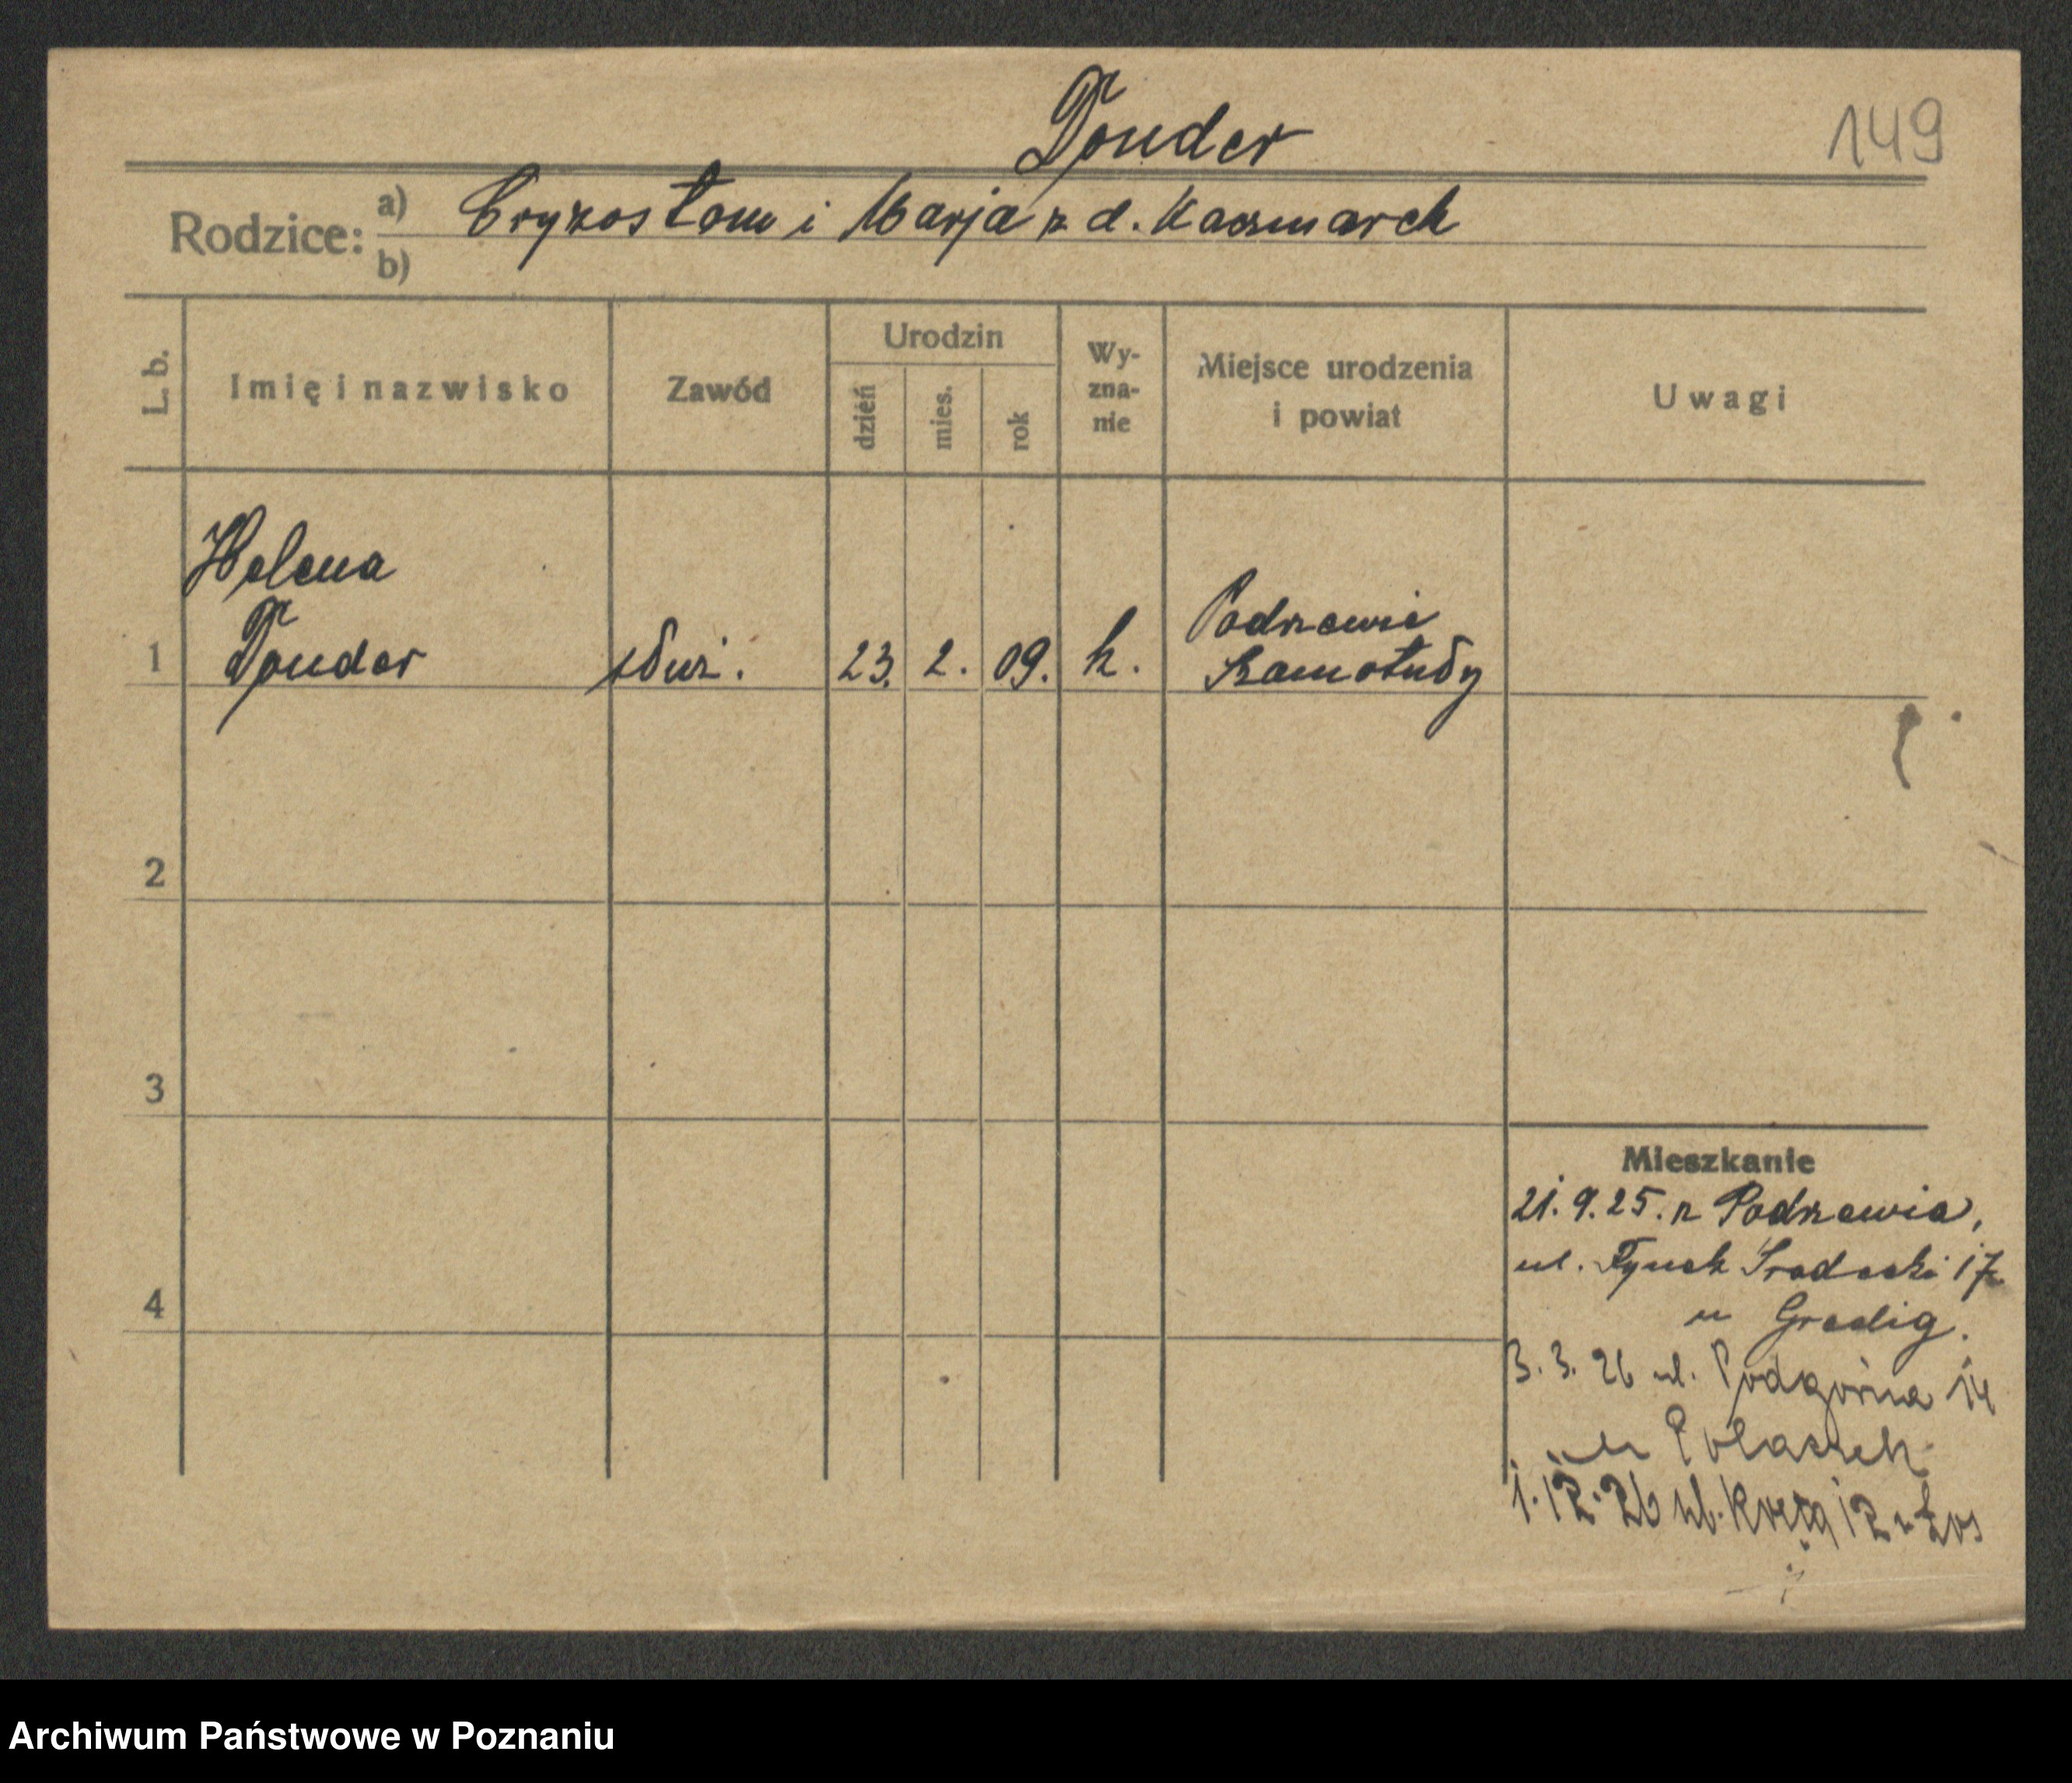 Donder
149
Rodzice: a) Cryzostom i Marja z d. Kaczmarek
b)
L. b.
Imię i nazwisko
Zawód
Urodzin
dzień
mies.
rok
Wy-
zna-
nie
Miejsce urodzenia
i powiat
Uwagi
Helena
1 Donder służ. 23. 2. 09. k. Podrzewie
Szamotuły
2
3
4
Mieszkanie
21.9.25. z Podrzewia,
ul. Rynek Śródecki 17
u Gredig.
3.3.26 ul. Podgórna 14
u Polaszek
1.12.26 ul. Kręta 12 u Łos
Archiwum Państwowe w Poznaniu